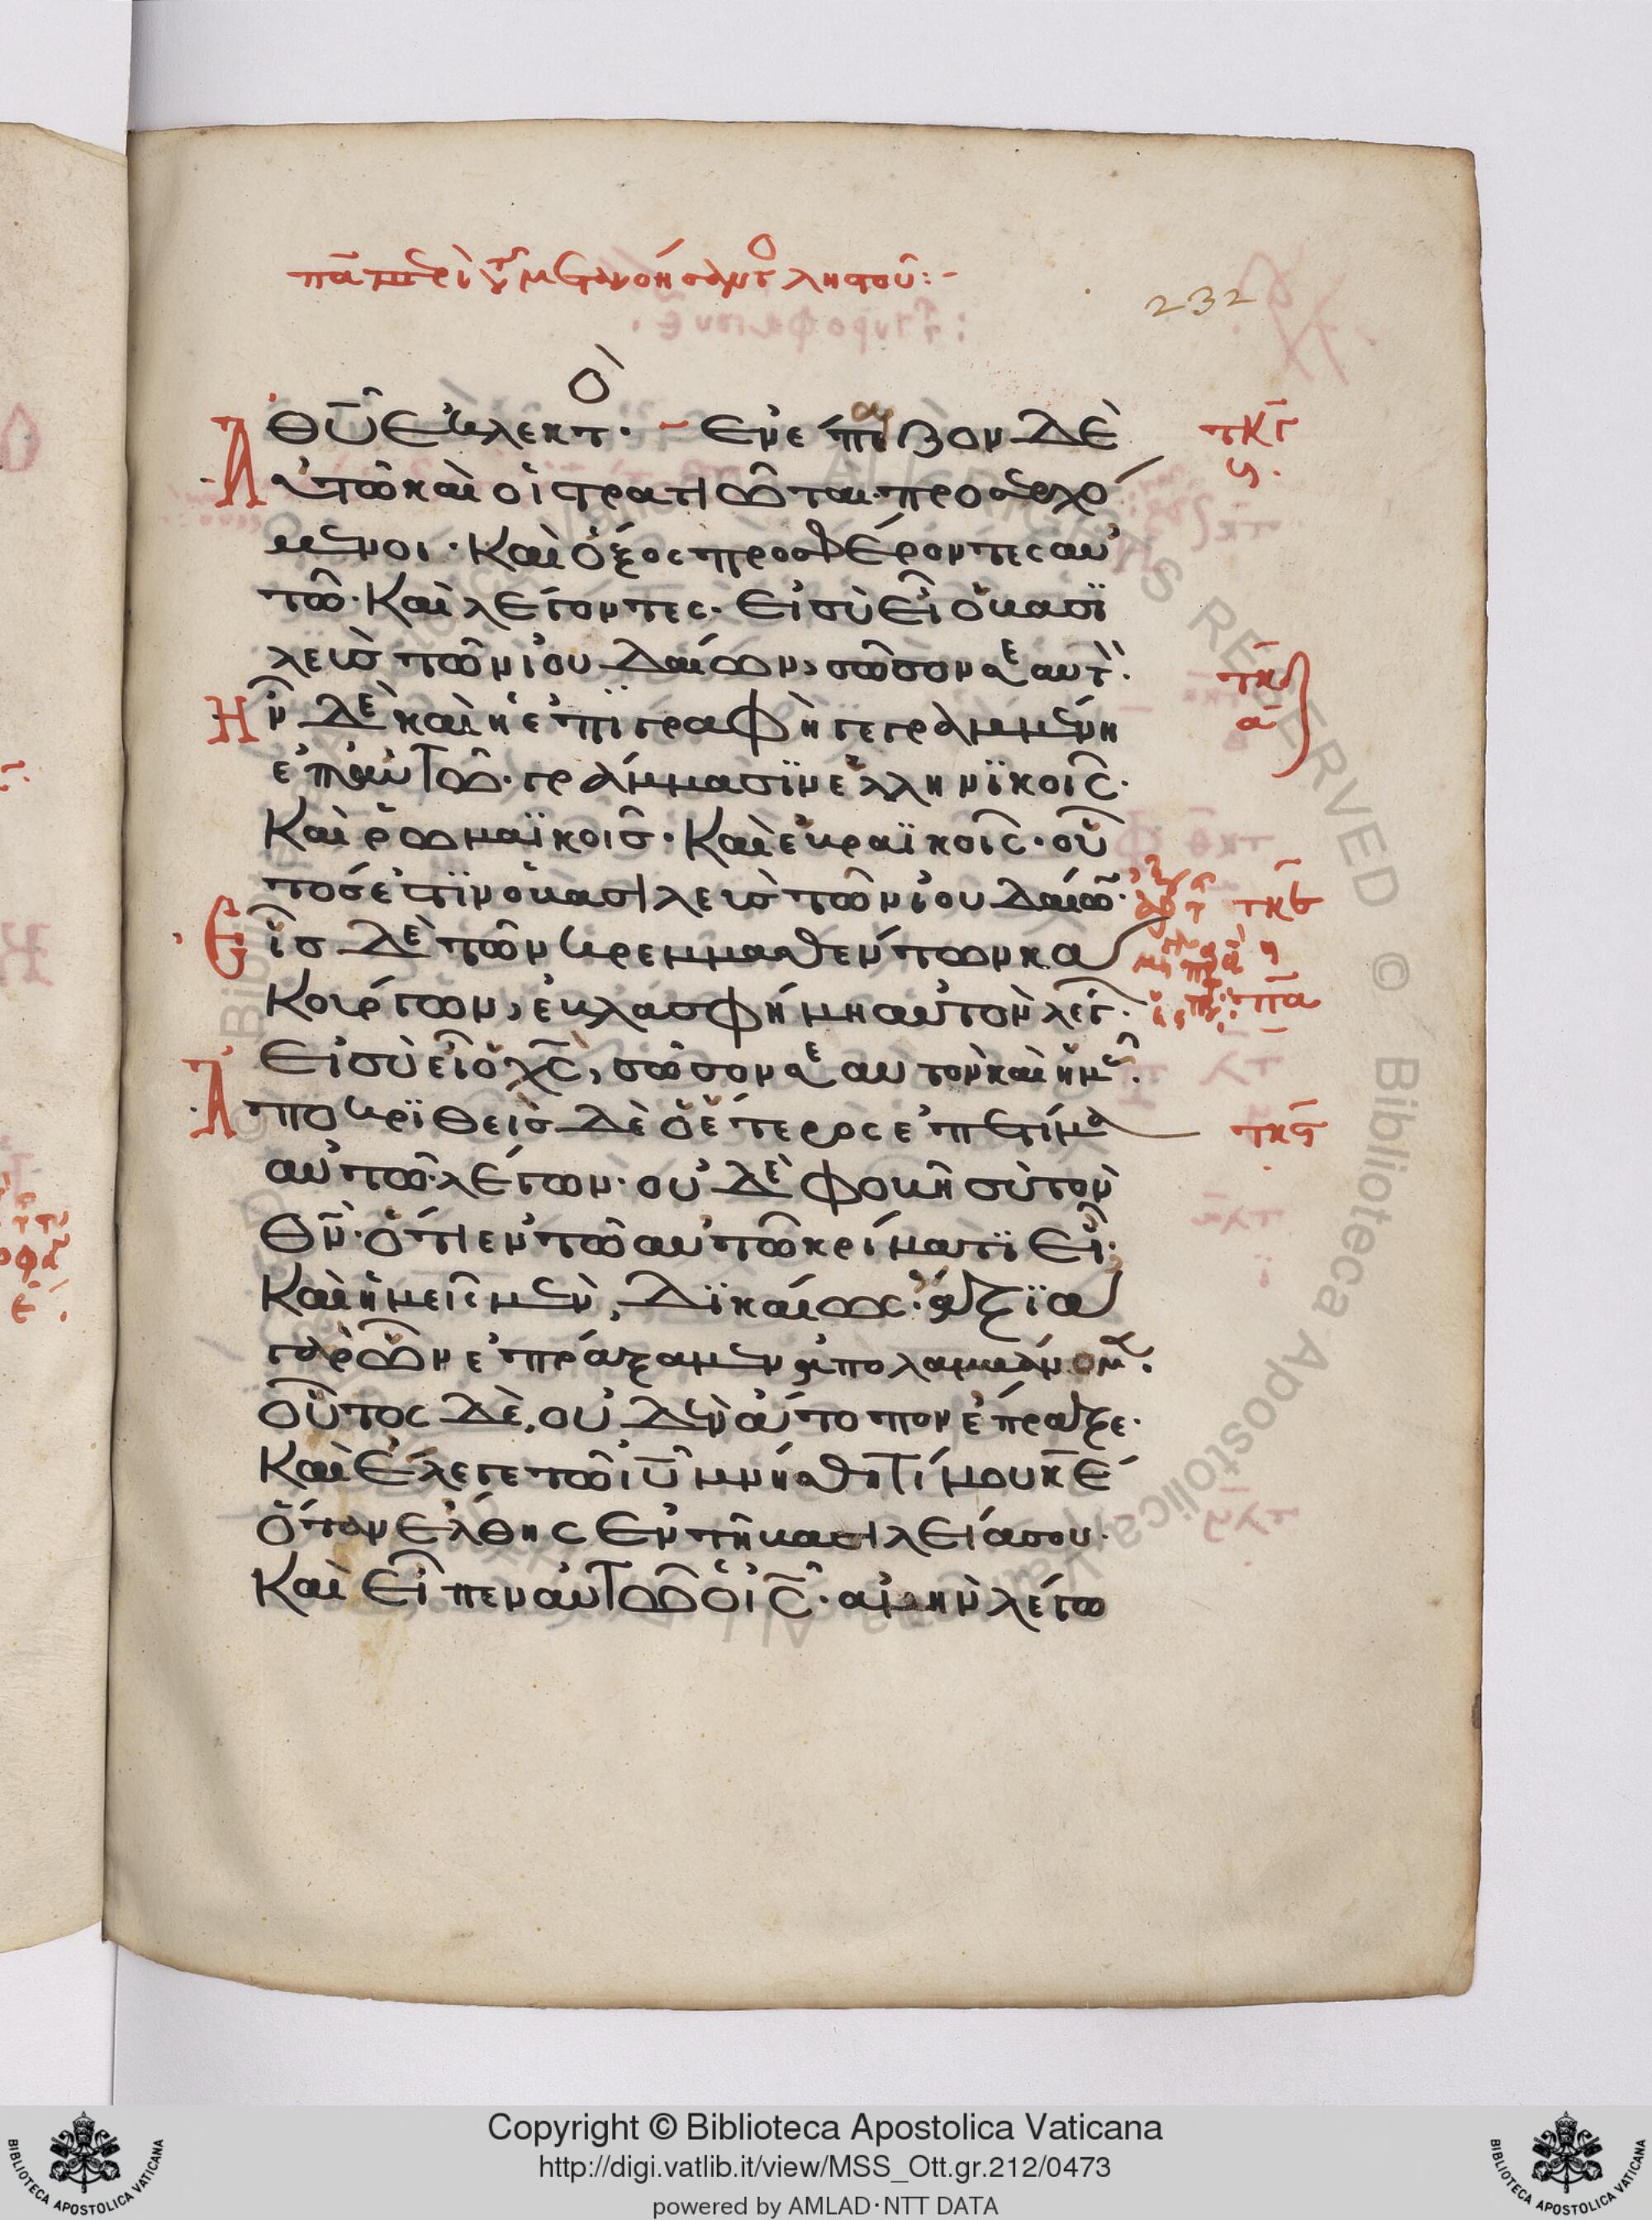 πα περὶ τοῦ μετανοήσαντος ληστοῦ:-
232
θῦ ἐκλεκτὸ. - ἐνέπαιζον δὲ
τκγ
Αὐτῶ καὶ οἱ στρατιῶται. προσερχό
μενοι. καὶ ὄξος προσφέροντες αὐ
τῶ. καὶ λέγοντες. εἰ σὺ εἶ ὁ βασϊ
λεὺσ τῶν ἰουδαίων, σῶσον σεαυτὸν.
τκδ
Ἦν δὲ καὶ ἡ ἐπϊγραφὴ γεγραμμένη
α
ἐπ' αὐτῶ. γράμμασϊν ἑλληνϊκοῖς.
καὶ ῥωμαϊκοῖσ. καὶ ἑβραϊκοῖς. οὗ
τόσ ἐστϊν ὁ βασιλεὺσ τῶν ἰουδαίων.
τκε
Εἷσ δὲ τῶν κρεμμασθέντων κα
κούργων, ἐβλασφήμη αὐτὸν λέγων.
τπα
εἰ σὺ εἶ ὁ χς, σῶσον σεαυτὸν καὶ ἡμᾶς.
Ἀποκρϊθεὶσ δὲ ὁ ἕτερος ἐπετίμα
τκς
αὐτῶ. λέγων. οὐδὲ φοβῆ σὺ τὸν
θν. ὅτι ἐν τῶ αὐτῶ κρίματϊ εἶ.
καὶ ἡμεῖς μὲν, δϊκαίως. ἄξϊα
γὰρ ὧν ἐπράξαμεν ἀπολαμβάνομεν.
οὗτος δὲ, οὐδὲν ἄτοπον ἔπραξε.
καὶ ἔλεγε τῶ ἰῦ μνήσθητί μου κε
ὅταν ἔλθης ἐν τῆ βασιλεία σου.
καὶ εἶπεν αὐτῶ ὁ ις. ἀμὴν λέγω
Copyright © Biblioteca Apostolica Vaticana
http://digi.vatlib.it/view/MSS_Ott.gr.212/0473
powered by AMLAD·NTT DATA